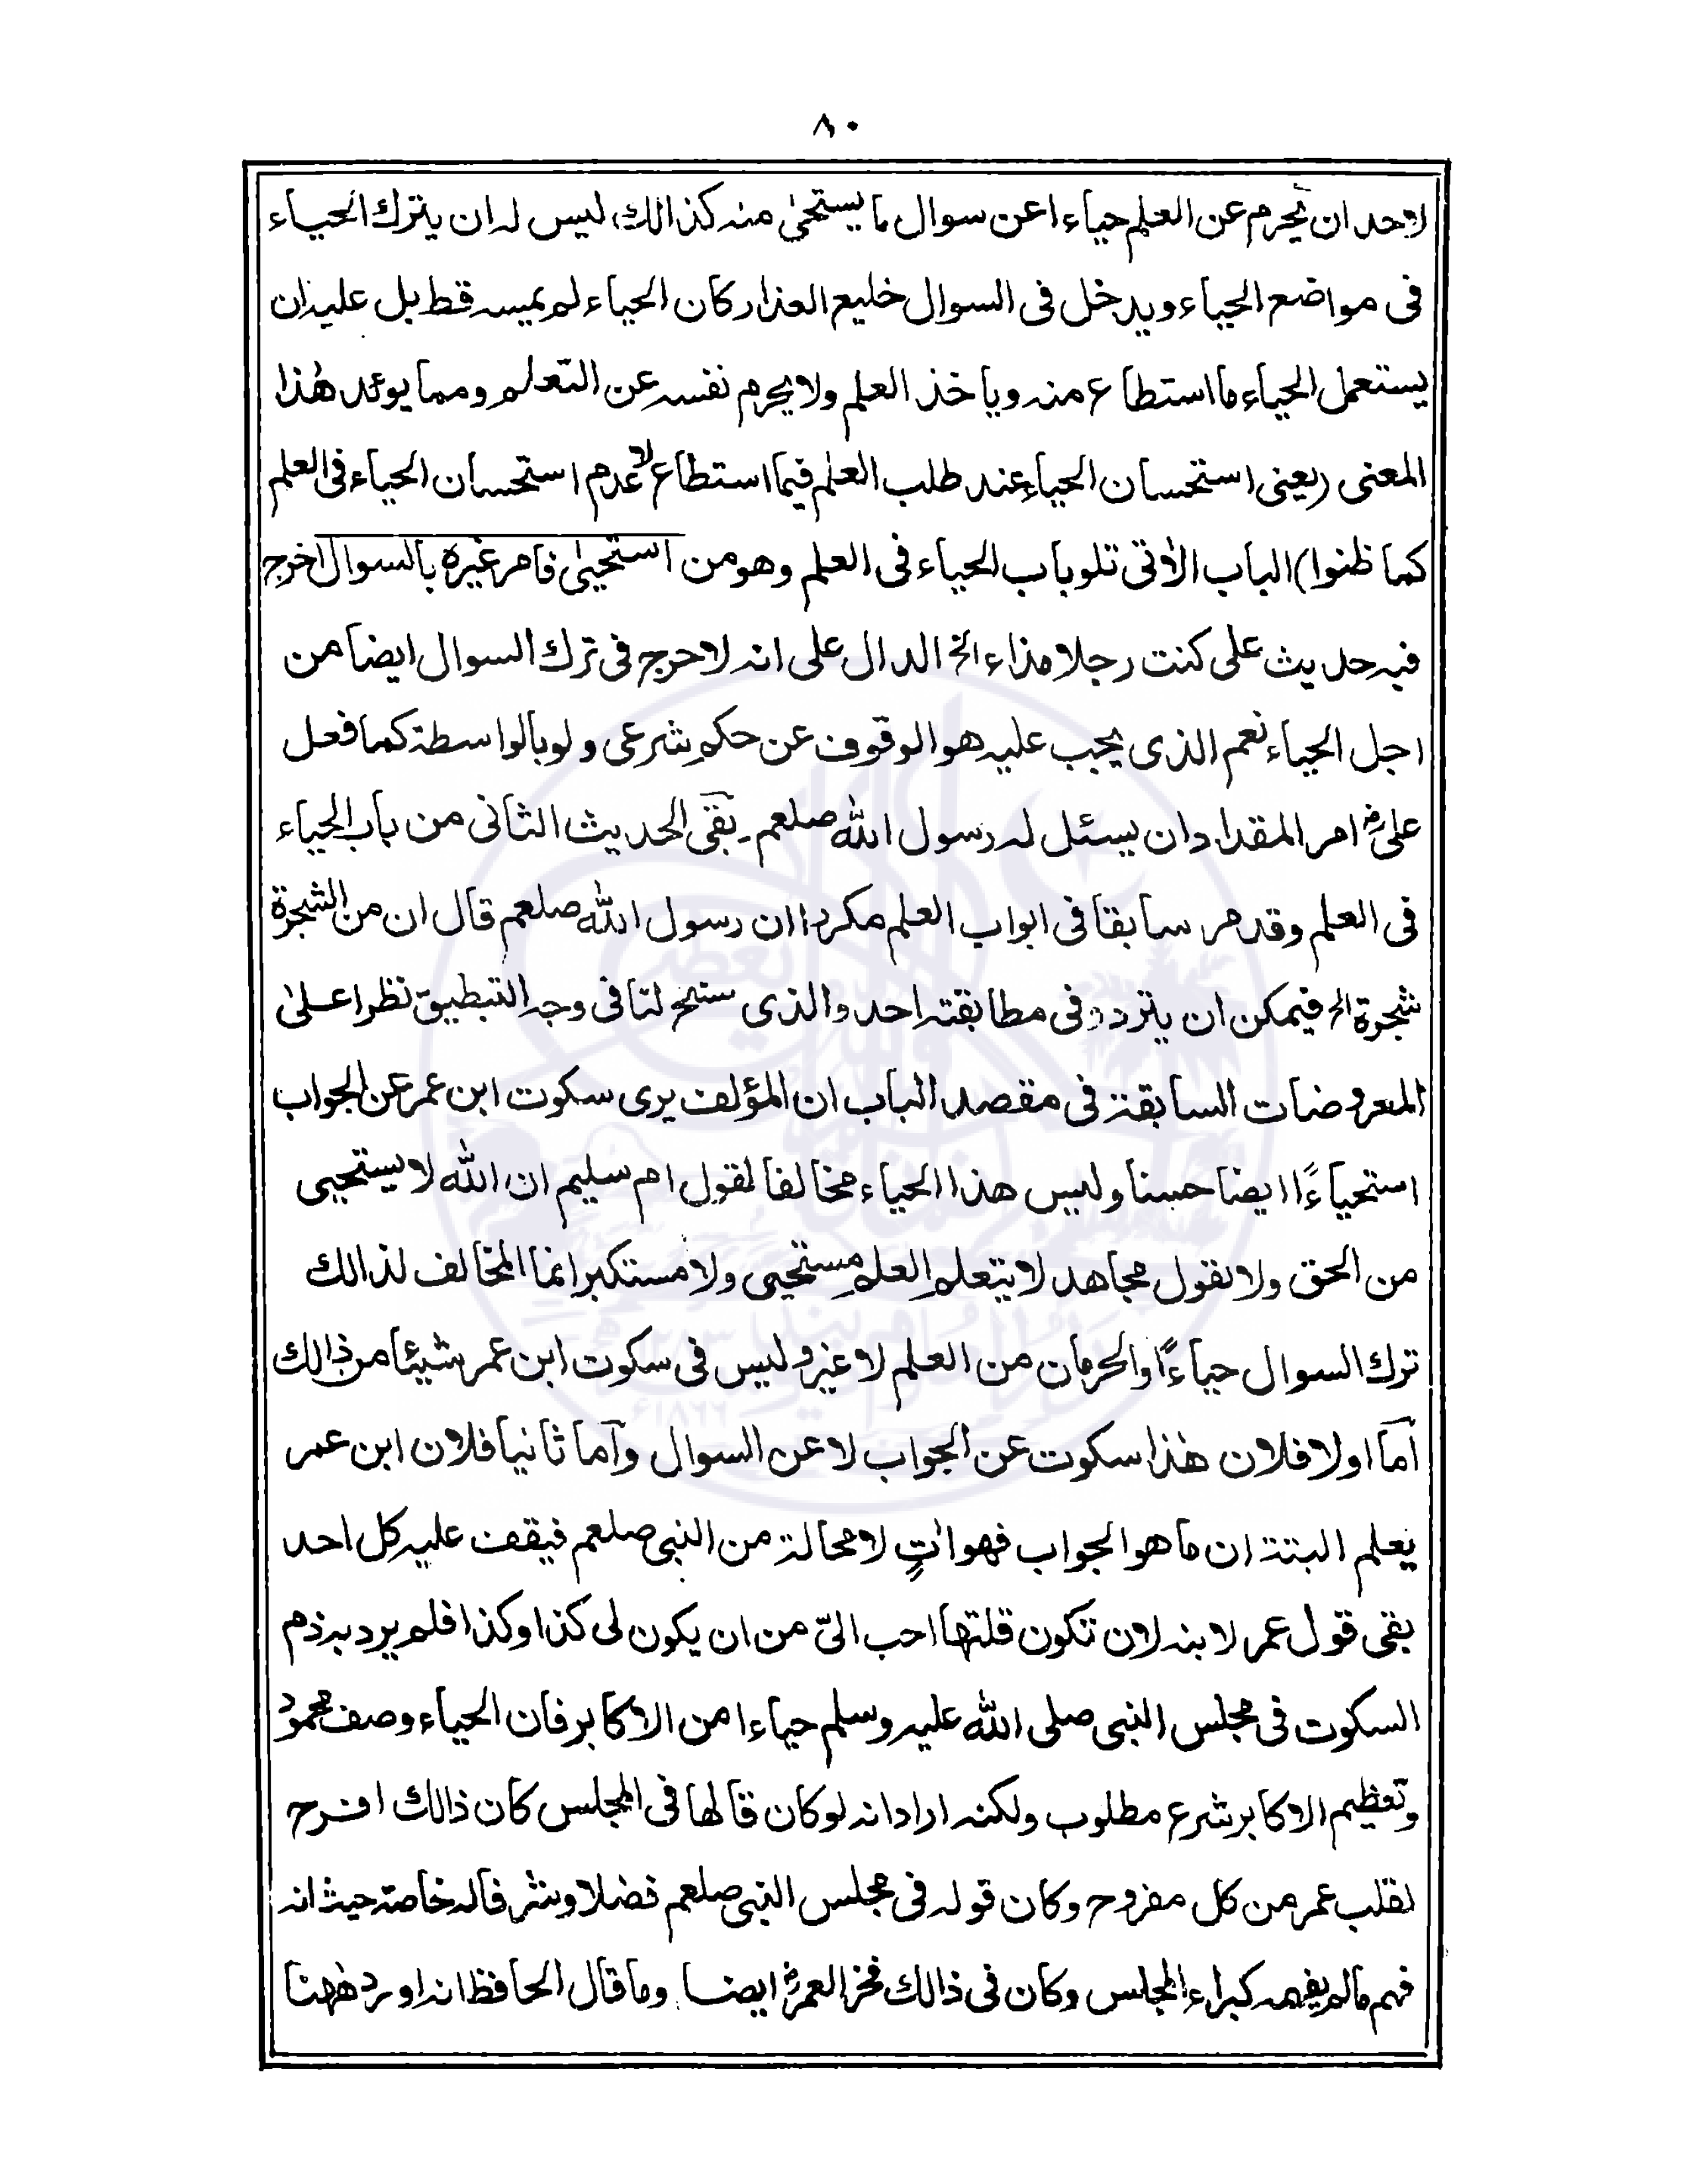 ٨٠
لاحد ان يحرم عن العلم حياءا عن سوال ما يستحيٰ منه كذالك ليس له ان يترك الحياء
فى مواضع الحياء ويدخل فى السوال خليع العذار كان الحياء لم يمسه قط بل عليه ان
يستعمل الحياء ما استطاع منه وياخذ العلم ولا يحرم نفسه عن التعلم ومما يوئد هٰذا
المعنى (يعنى استحسان الحياء عند طلب العلم فيما استطاع لا عدم استحسان الحياء فى العلم
كما ظنوا) الباب الأتى تلو باب الحياء فى العلم وهو من استحيىٰ فامر غيره بالسوال اخرج
فيه حديث على كنت رجلا مذاء الخ الدال على انه لا حرج فى ترك السوال ايضا من
اجل الحياء نعم الذى يجب عليه هو الوقوف عن حكم شرعى ولو بالواسطة كما فعل
علىؓ امر المقداد ان يسئل له رسول الله صلعم۔ بقى الحديث الثانى من باب الحياء
فى العلم وقد مر سابقا فى ابواب العلم مكررا ان رسول الله صلعم قال ان من الشجرة
شجرة الخ فيمكن ان يتردد فى مطابقته احد والذى سنح لنا فى وجه التبطيق نظرا علىٰ
المعروضات السابقة فى مقصد الباب ان المؤلف يرى سكوت ابن عمر عن الجواب
استحياءًا ايضا حسنا وليس هذا الحياء مخالفا لقول ام سليم ان الله لا يستحيى
من الحق ولا لقول مجاهد لا يتعلم العلم مستحيى ولا مستكبر انما المخالف لذالك
ترك السوال حياءًا والحرمان من العلم لا غير وليس فى سكوت ابن عمر شيئا من ذالك
اَما اولا فلان هٰذا سكوت عن الجواب لا عن السوال واَما ثانيا فلان ابن عمر
يعلم البتة ان ما هو الجواب فهو اٰتٍ لا محالة من النبى صلعم فيقف عليه كل احد
بقى قول عمر لابنه لان تكون قلتها احب الىّ من ان يكون لى كذا وكذا فلم يرد به ذم
السكوت فى مجلس النبى صلى الله عليه وسلم حياءا من الاكابر فان الحياء وصف محمود
وتعظيم الاكابر شرع مطلوب ولكنه اراد انه لو كان قالها فى المجلس كان ذالك افرح
لقلب عمر من كل مفروح وكان قوله فى مجلس النبى صلعم فضلا وشرفا له خاصة حيث انه
فهم ما لم يفهمه كبراء المجلس وكان فى ذالك فخر العمرؓ ايضا وما قال الحافظ انه اورد هٰهنا